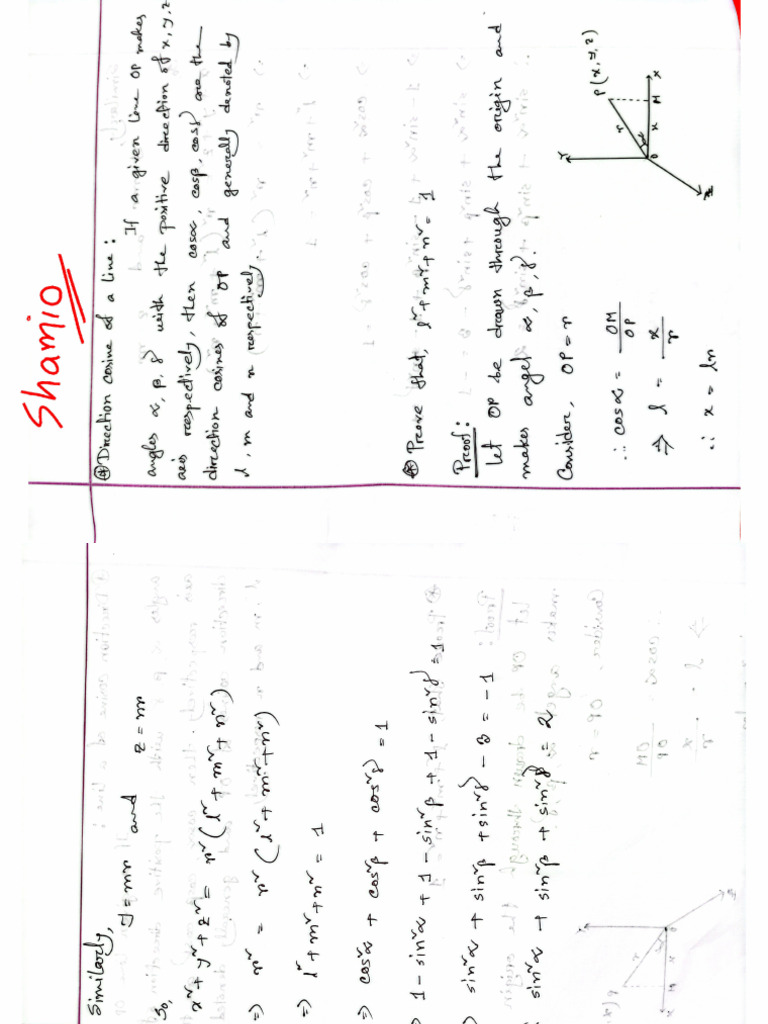 Shamio
⊛ Direction cosine of a line:
If a given line OP makes
angles α, β, γ with the positive direction of x, y, z
axis respectively, then cosα, cosβ, cosγ are the
direction cosines of OP and generally denoted by
l, m and n respectively
⊛ Prove that, l² + m² + n² = 1
Proof:
Let OP be drawn through the origin and
makes angel α, β, γ.
Consider, OP = r
∴ cosα = OM/OP
⇒ l = x/r
∴ x = lr
Y
P(x, y, z)
r
α
O
x
M
X
Z
Similarly,
y = mr and z = nr
So,
x² + y² + z² = r² (l² + m² + n²)
⇒ r² = r² (l² + m² + n²)
⇒ l² + m² + n² = 1
⇒ cos²α + cos²β + cos²γ = 1
⇒ 1 - sin²α + 1 - sin²β + 1 - sin²γ = 1
⇒ sin²α + sin²β + sin²γ - 3 = -1
sin²α + sin²β + sin²γ = 2